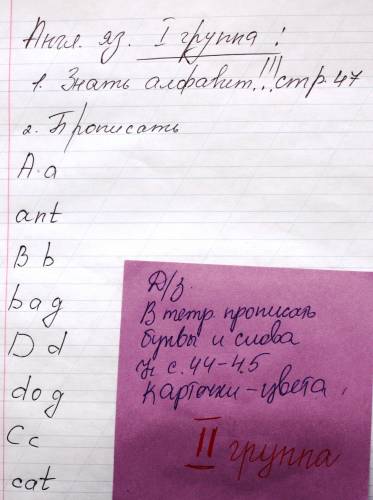 Англ. яз. I группа :
1. Знать алфавит!!! стр. 47
2. Прописать
A a
ant
B b
bag
D d
dog
C c
cat
Д/з.
В тетр. прописать
буквы и слова
У. с. 44-45
Карточки - цвета
II группа